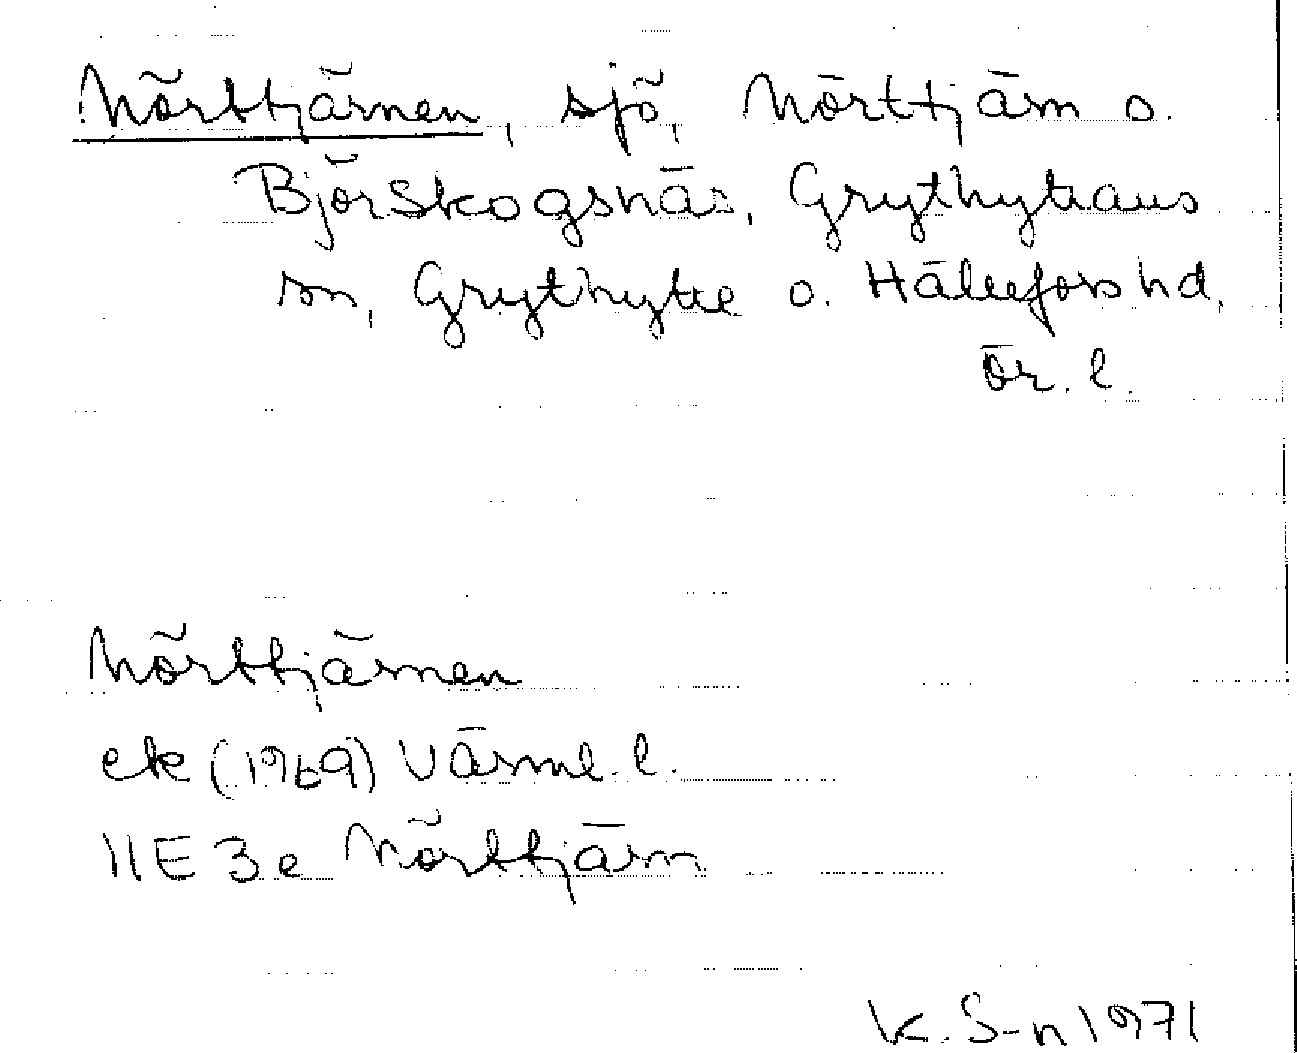 Mörttjärnen, sjö, Mörttjärn o.
Björskogsnäs, Grythyttans
sn, Grythytte o. Hällefors hd,
Ör. l.
Mörttjärnen
ek (1969) Värml. l.
11E 3e Mörttjärn
K. S-n 1971